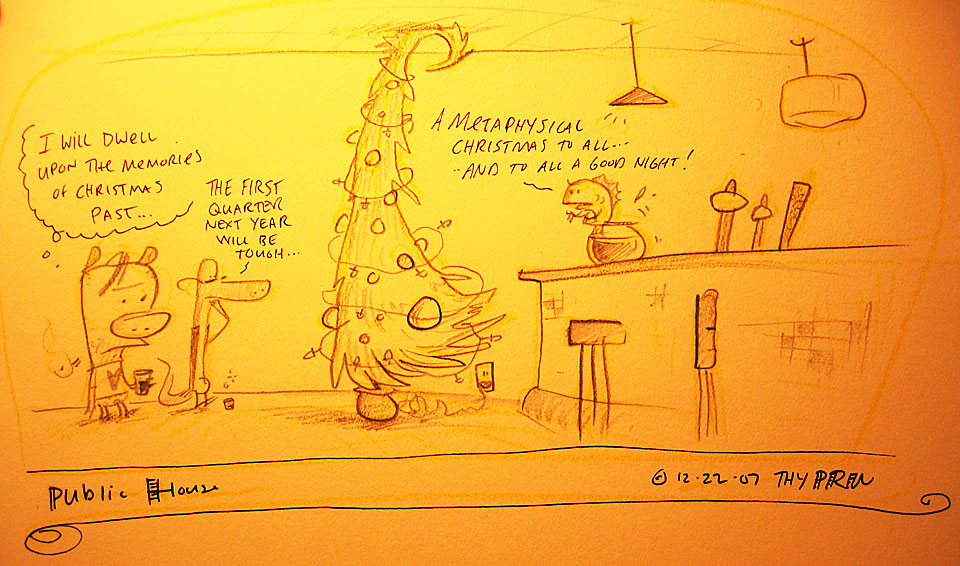 I WILL DWELL
UPON THE MEMORIES
OF CHRISTMAS
PAST...
THE FIRST
QUARTER
NEXT YEAR
WILL BE
TOUGH...
A METAPHYSICAL
CHRISTMAS TO ALL...
..AND TO ALL A GOOD NIGHT!
Public House
© 12-22-07 THY PREN